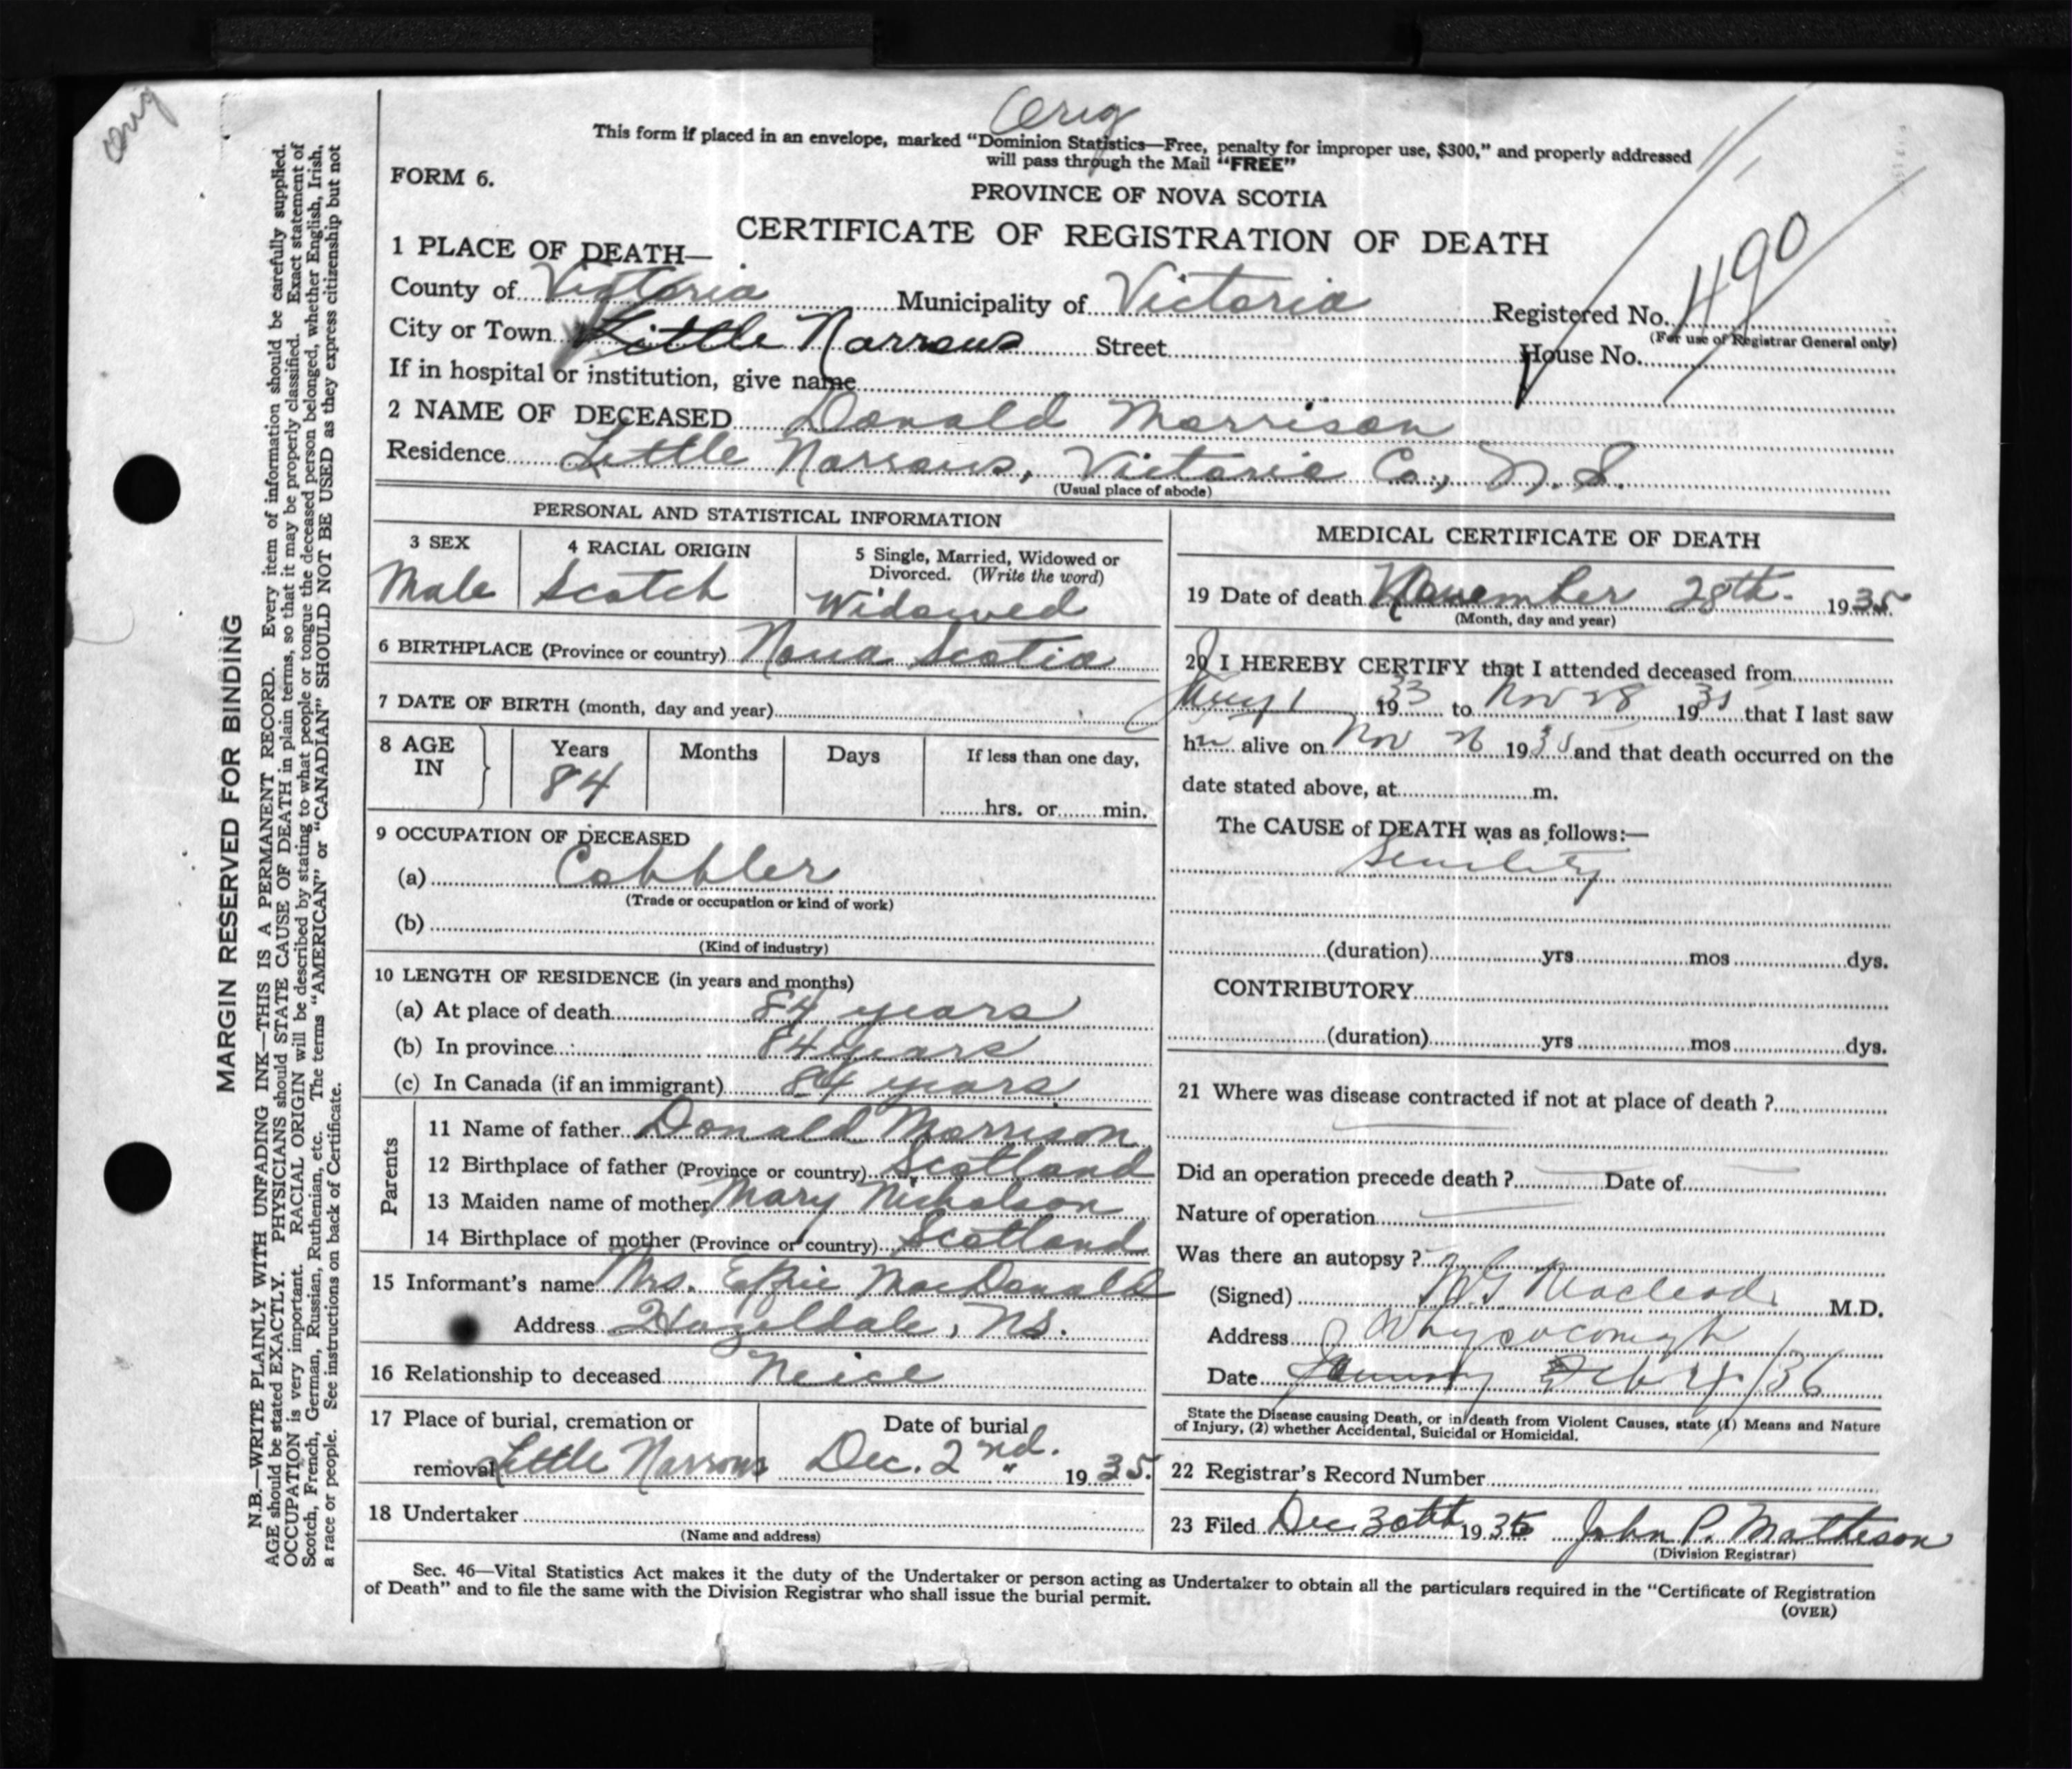 Orig
orig
This form if placed in an envelope, marked "Dominion Statistics—Free, penalty for improper use, $300," and properly addressed
will pass through the Mail "FREE"
FORM 6.
PROVINCE OF NOVA SCOTIA
CERTIFICATE OF REGISTRATION OF DEATH
1 PLACE OF DEATH—
County of Victoria Municipality of Victoria Registered No. 490
(For use of Registrar General only)
City or Town Little Narrows Street House No.
If in hospital or institution, give name
2 NAME OF DECEASED Donald Morrison
Residence Little Narrows, Victoria Co., N.S.
(Usual place of abode)
PERSONAL AND STATISTICAL INFORMATION
3 SEX 4 RACIAL ORIGIN 5 Single, Married, Widowed or
Divorced. (Write the word)
Male Scotch Widowed
6 BIRTHPLACE (Province or country) Nova Scotia
7 DATE OF BIRTH (month, day and year)
8 AGE IN Years Months Days If less than one day,
84 hrs. or min.
9 OCCUPATION OF DECEASED
(a) Cobbler
(Trade or occupation or kind of work)
(b)
(Kind of industry)
10 LENGTH OF RESIDENCE (in years and months)
(a) At place of death 84 years
(b) In province 84 years
(c) In Canada (if an immigrant) 84 years
Parents
11 Name of father Donald Morrison
12 Birthplace of father (Province or country) Scotland
13 Maiden name of mother Mary Nicholson
14 Birthplace of mother (Province or country) Scotland
15 Informant's name Mrs. Effie MacDonald
Address Hazeldale, N.S.
16 Relationship to deceased Neice
17 Place of burial, cremation or Date of burial
removal Little Narrows Dec. 2nd. 1935.
18 Undertaker
(Name and address)
MEDICAL CERTIFICATE OF DEATH
19 Date of death November 28th 1935
(Month, day and year)
20 I HEREBY CERTIFY that I attended deceased from
1 1933 to Nov 28 1935 that I last saw
him alive on Nov 26 1935 and that death occurred on the
date stated above, at m.
The CAUSE of DEATH was as follows:—
Senility
(duration) yrs mos dys.
CONTRIBUTORY
(duration) yrs mos dys.
21 Where was disease contracted if not at place of death ?
Did an operation precede death ? Date of
Nature of operation
Was there an autopsy ?
(Signed) Macleod M.D.
Address Whycocomagh
Date January Feb /36
State the Disease causing Death, or in death from Violent Causes, state (1) Means and Nature
of Injury, (2) whether Accidental, Suicidal or Homicidal.
22 Registrar's Record Number
23 Filed Dec. 30th 1935 John P. Matheson
(Division Registrar)
Sec. 46—Vital Statistics Act makes it the duty of the Undertaker or person acting as Undertaker to obtain all the particulars required in the "Certificate of Registration
of Death" and to file the same with the Division Registrar who shall issue the burial permit.
(OVER)
MARGIN RESERVED FOR BINDING
N.B.—WRITE PLAINLY WITH UNFADING INK—THIS IS A PERMANENT RECORD. Every item of information should be carefully supplied.
AGE should be stated EXACTLY. PHYSICIANS should STATE CAUSE OF DEATH in plain terms, so that it may be properly classified. Exact statement of
OCCUPATION is very important. RACIAL ORIGIN will be described by stating to what people or tongue the deceased person belonged, whether English, Irish,
Scotch, French, German, Russian, Ruthenian, etc. The terms "AMERICAN" or "CANADIAN" SHOULD NOT BE USED as they express citizenship but not
a race or people. See instructions on back of Certificate.